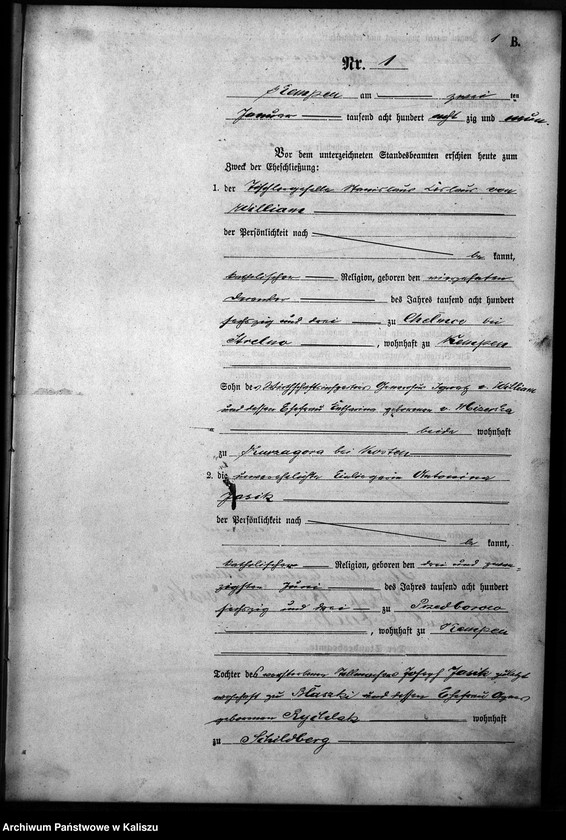 1 B.
Nr. 1
Kempen am zwei ten
Januar tausend acht hundert acht zig und neun.
Vor dem unterzeichneten Standesbeamten erschien heute zum
Zweck der Eheschließung:
1. der Tischlergeselle Stanislaus von
der Persönlichkeit nach
be kannt,
katholischer Religion, geboren den vierzehnten
Dezember des Jahres tausend acht hundert
sechszig und drei zu Chelmce bei
Strelno, wohnhaft zu Kempen
Sohn des Wirthschaftsinspektor v.
und dessen Ehefrau Catharina geborenen v.
beide wohnhaft
zu Kurzagora bei Kosten
2. die unverehelichte Antonina
Jasik
der Persönlichkeit nach
be kannt,
katholischer Religion, geboren den drei und zwan-
zigsten Juni des Jahres tausend acht hundert
sechszig und drei zu Przedborow
, wohnhaft zu Kempen
Tochter des verstorbenen Joseph Jasik zuletzt
wohnhaft zu Blaszki und dessen Ehefrau Agnes
geborenen wohnhaft
zu Schildberg
Archiwum Państwowe w Kaliszu